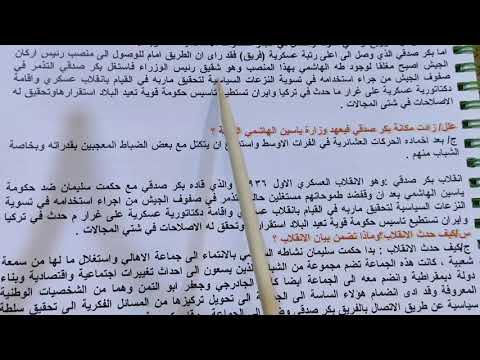 اما بكر صدقي الذي وصل الى اعلى رتبة عسكرية (فريق) فقد راى ان الطريق امام للوصول الى منصب رئيس اركان
الجيش اصبح مغلقا لوجود طه الهاشمي بهذا المنصب وهو شقيق رئيس الوزراء فاستغل بكر صدقي التذمر في
صفوف الجيش من جراء استخدامه في تسوية النزعات السياسية لتحقيق ماربه في القيام بانقلاب عسكري واقامة
دكتاتورية عسكرية على غرار ما حدث في تركيا وايران تستطيع تاسيس حكومة قوية تعيد البلاد استقرارها وتحقيق له
الاصلاحات في شتى المجالات .
علل/ زادت مكانة بكر صدقي فيعهد وزارة ياسين الهاشمي ؟
ج/ بعد اخماده الحركات العشائرية في الفرات الاوسط ان يتكتل مع بعض الضباط المعجبين بقدراته وبخاصة
الشباب منهم .
انقلاب بكر صدقي :وهو الانقلاب العسكري الاول ١٩٣٦ والذي قاده بكر صدقي مع حكمت سليمان ضد حكومة
ياسين الهاشمي بعد ان وقفضد طموحاتهم مستغلين التذمر في صفوف الجيش من جراء استخدامه في تسوية
النزعات السياسية لتحقيق ماربه في القيام بانقلاب واقامة دكتاتورية عسكرية على غرار م حدث في تركيا
وايران تستطيع تاسيس حكومة قوية تعيد البلاد وتحقق له الاصلاحات في شتى المجالات .
س/كيف حدث الانقلاب؟وماذا تضمن بيان الانقلاب ؟
ج/كيف حدث الانقلاب : بدا حكمت سليمان نشاطه بالانتماء الى جماعة الاهالي واستغلال ما لها من سمعة
شعبية ، كانت هذه الجماعة تضم مجموعة من الشباب الذين يسعون الى احداث تغييرات اجتماعية واقتصادية وبناء
دولة ديمقراطية وانضم معه الى الجماعة ايضا الجادرجي وجعفر ابو التمن وهما من الشخصيات الوطنية
المعروفة وقد ادى انضمام هؤلاء الساسة الى الجماعة الى تحويل تركيزها من المسائل الفكرية الى تحقيق سلطة
سياسية عن طريق الاتصال بالفريق بكر صدقي الى الجماعة